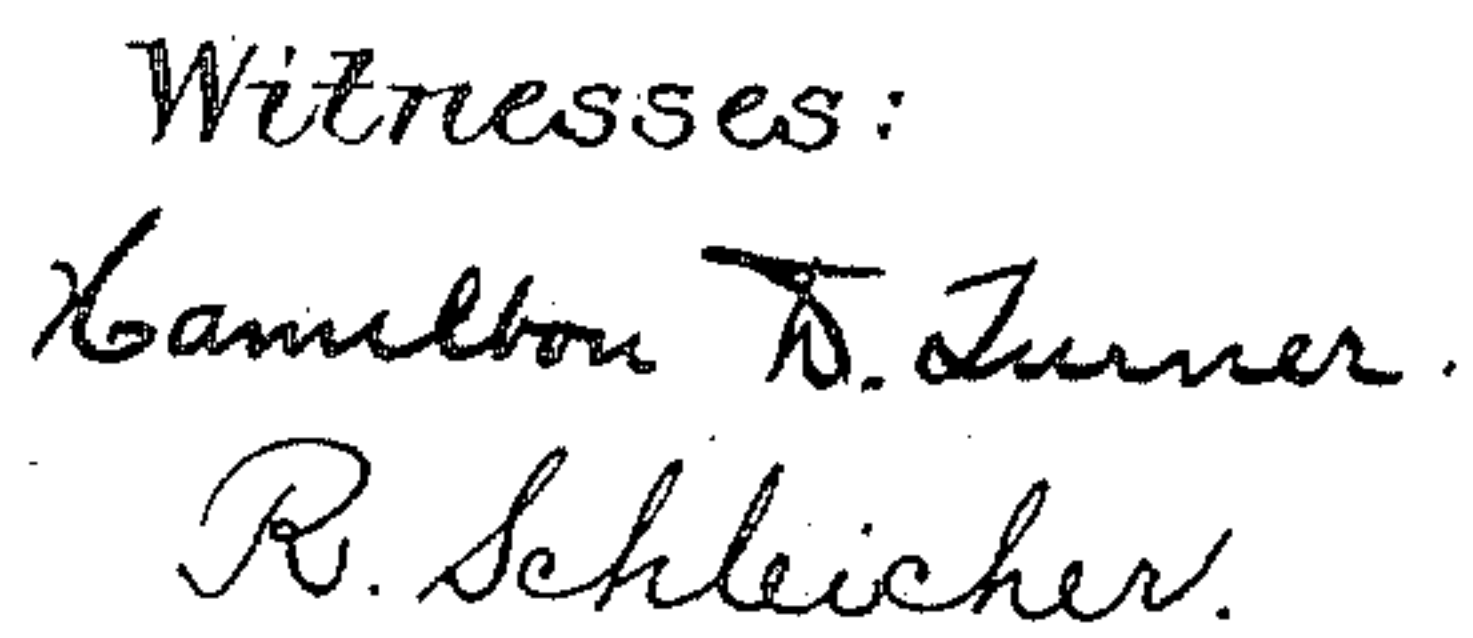 Witnesses:
Hamilton D. Turner.
R. Schleicher.